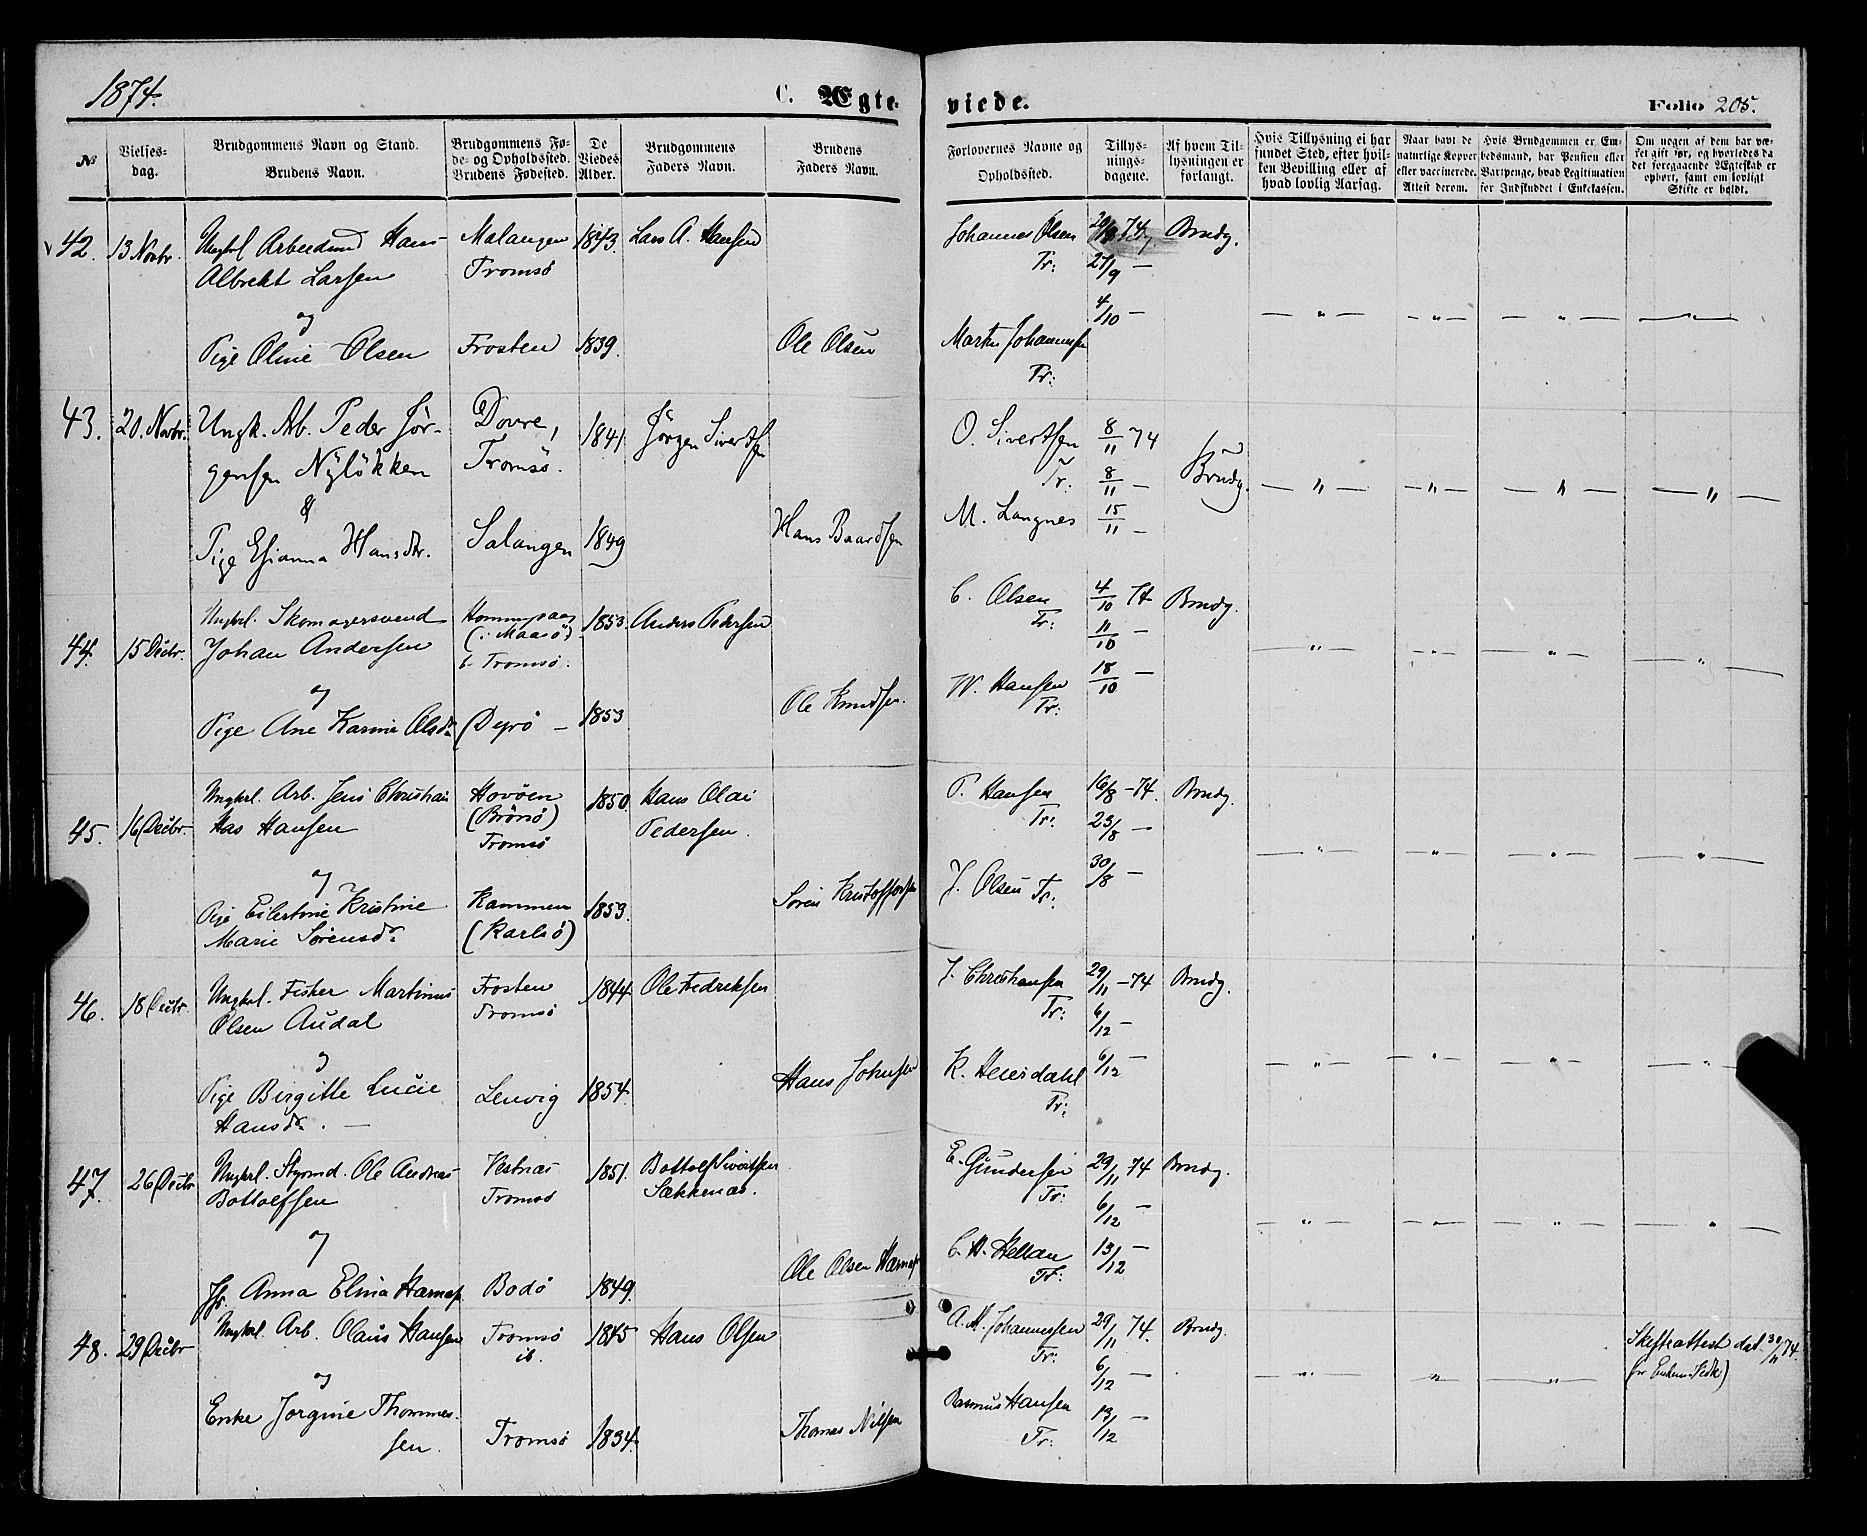 1874.
C. Ægte-
viede.
Folio 205.
No
Vielses-
dag.
Brudgommens Navn og Stand.
Brudens Navn.
Brudgommens Fø-
de- og Opholdssted.
Brudens Fødested.
De
Viedes
Alder.
Brudgommens
Faders Navn.
Brudens
Faders Navn.
Forlovernes Navne og
Opholdssted.
Tillys-
nings-
dagene.
Af hvem Til-
lysningen er
forlangt.
Hvis Tillysning ei har
fundet Sted, efter hvil-
ken Bevilling eller af
hvad lovlig Aarsag.
Naar havt de
naturlige Kopper
eller vaccinerede.
Attest derom.
Hvis Brudgommen er Em-
bedsmand, har Pension eller
Vartpenge, hvad Legitimation
for Indskuddet i Enkekassen.
Om nogen af dem har væ-
ret gift før, og hvorledes da
det foregaaende Ægteskab er
ophørt, samt om lovligt
Skifte er holdt.
42. 13 Novbr. Ungkl Arbeidsmd Hans Malangen 1843. Lars A. Hansen Johannes Olsen 74 Brudg.
Albrekt Larsen Tromsö Tr: 27/9 —
og 4/10 —
Pige Oline Olsen Frosten 1839. Ole Olsen Martin Johannesen
Tr:
43. 20. Novbr. Ungk. Arb. Peder Jör- Dovre, 1841. Jörgen Sivertsen O. Sivertsen 8/11 74
gensen Nylökken Tromsö. Tr: 8/11 — Brudg.
& M. Langnes 15/11 —
Pige Esianna Hansdtr. Salangen 1849 Hans Baardsen
44. 15 Decbr. Ungkl. Skomagersvend 1853. Anders Pedersen C. Olsen 4/10 74 Brudg.
Johan Andersen (i Maasö) Tr: 11/10 —
b. Tromsö. W. Hansen 18/10 —
og Ole Knudsen. Tr:
Pige Ane Karine Olsdr. (Dyrö — 1853
45. 16 Decbr. Ungkl. Arb. Jens Christian Hovöen 1850. Hans Olai P. Hansen 16/8 – 74. Brudg.
Has Hansen (Brönö) Pedersen. Tr: 23/8 —
Tromsö 30/8 —
og J. Olsen Tr:
Pige Eilertine Kristine Kammen 1853. Sören Kristoffersen
Marie Sörensdr. (Karlsö)
46. 18 Decbr. Ungkl. Fisker Martinus Frosten 1844. Ole Fedriksen J. Christiansen 29/11 – 74 Brudg.
Olsen Audal Tromsö Tr: 6/12 —
og K. Heiersdahl 6/12 —
Pige Birgitte Lucie Lenvig 1854. Hans Johnsen Tr:
Hansdr. —
47. 26 Decbr Ungkl. Styrmd. Ole Andreas Vestnæs 1851. Bottolf Sivertsen E. Gundersen 29/11 74 Brudg.
Bottolfsen Tromsö Sækkenæs. Tr: 6/12 —
og C. H. Hellan 13/12 —
Tr:
Jfr. Anna Elina Harnes Bodö 1849. Ole Olsen Harnes
48. 29 Decbr Ungkl. Arb. Olaus Hansen Tromsö 1845 Hans Olsen A. M. Johannessen 29/11 74. Brudg. Skifteattest dat. 30/11 74.
ib. Tr: 6/12 —
og Rasmus Hansen 13/12 —
Enke Jörgine Thommes- Tromsö 1834. Thomas Nilsen Tr:
sen.